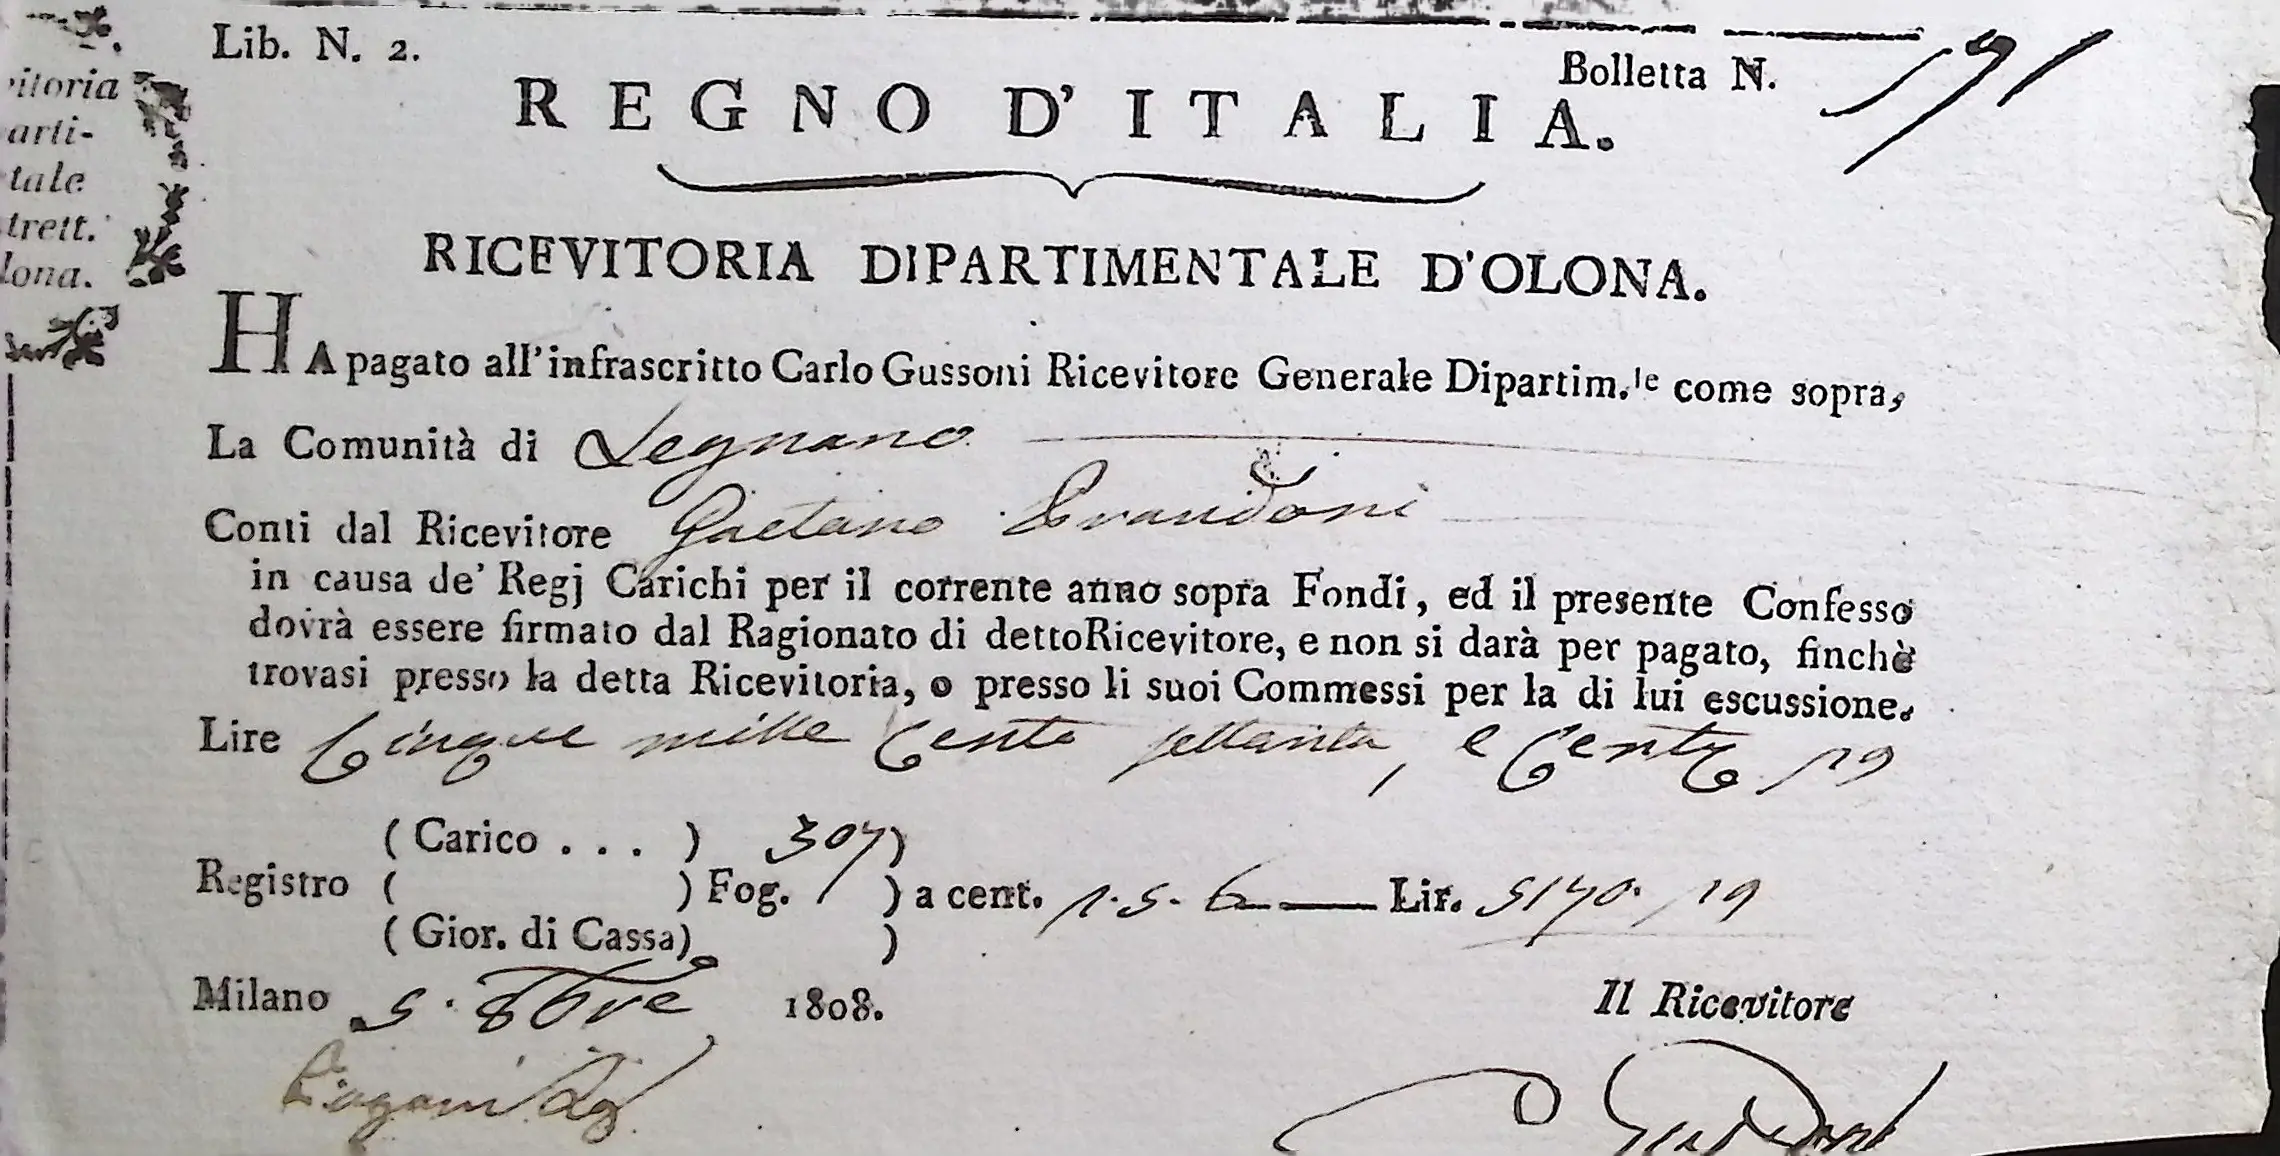 Lib. N. 2.
Bolletta N. 191
REGNO D'ITALIA.
RICEVITORIA DIPARTIMENTALE D'OLONA.
itoria
arti-
tale
trett.
lona.
HA pagato all'infrascritto Carlo Gussoni Ricevitore Generale Dipartim.le come sopra,
La Comunità di Legnano
Conti dal Ricevitore Gaetano Brandoni
in causa de' Regj Carichi per il corrente anno sopra Fondi, ed il presente Confesso
dovrà essere firmato dal Ragionato di detto Ricevitore, e non si darà per pagato, finchè
trovasi presso la detta Ricevitoria, o presso li suoi Commessi per la di lui escussione.
Lire Cinque mille Cento settanta, e Cent. 19
(Carico . . . ) 307)
Registro ( ) Fog. ) a cent. 1.5.6 — Lir. 5170. 19
(Gior. di Cassa) )
Milano 5. 8bre 1808.
Il Ricevitore